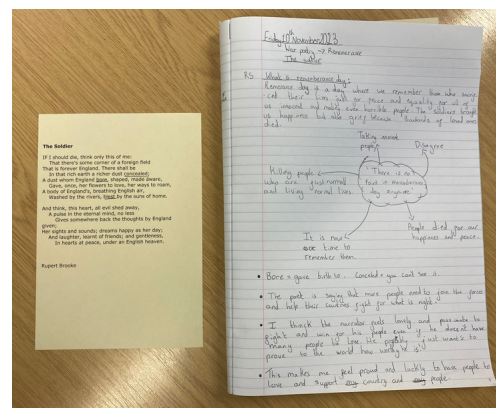 The Soldier
IF I should die, think only this of me:
That there's some corner of a foreign field
That is forever England. There shall be
In that rich earth a richer dust concealed;
A dust whom England bore, shaped, made aware,
Gave, once, her flowers to love, her ways to roam,
A body of England's, breathing English air,
Washed by the rivers, blest by the suns of home.
And think, this heart, all evil shed away,
A pulse in the eternal mind, no less
Gives somewhere back the thoughts by England
given;
Her sights and sounds; dreams happy as her day;
And laughter, learnt of friends; and gentleness,
In hearts at peace, under an English heaven.
Rupert Brooke
Friday 10th November 2023
War poetry → Rememerance
The soldier
RS What is rememberance day?
Remerance day is a day where we remember those who
their lives just for peace and equality for all of
us inocent and maybe even horrible people. The soldiers brought
us happiness but also grief because thousands of loved ones
died.
Taking inocent
people
Disagree
Killing people
who are just normall
and living normal lives.
"There is no
point in rememberance
day anymore"
People died for our
happiness and peace.
It is nice
time to
remember them.
• Bore = gave birth to. Concealed = you can't see it.
• The poet is saying that more people need to join the forces
and help their countries fight for what is right.
• I think the narrator feels lonely and passionate to
fight and win for his people even if he doesn't have
many people to love. He just wants to
prove to the world how worthy he is.
• This makes me feel proud and luckly to have people to
love and support country and people.